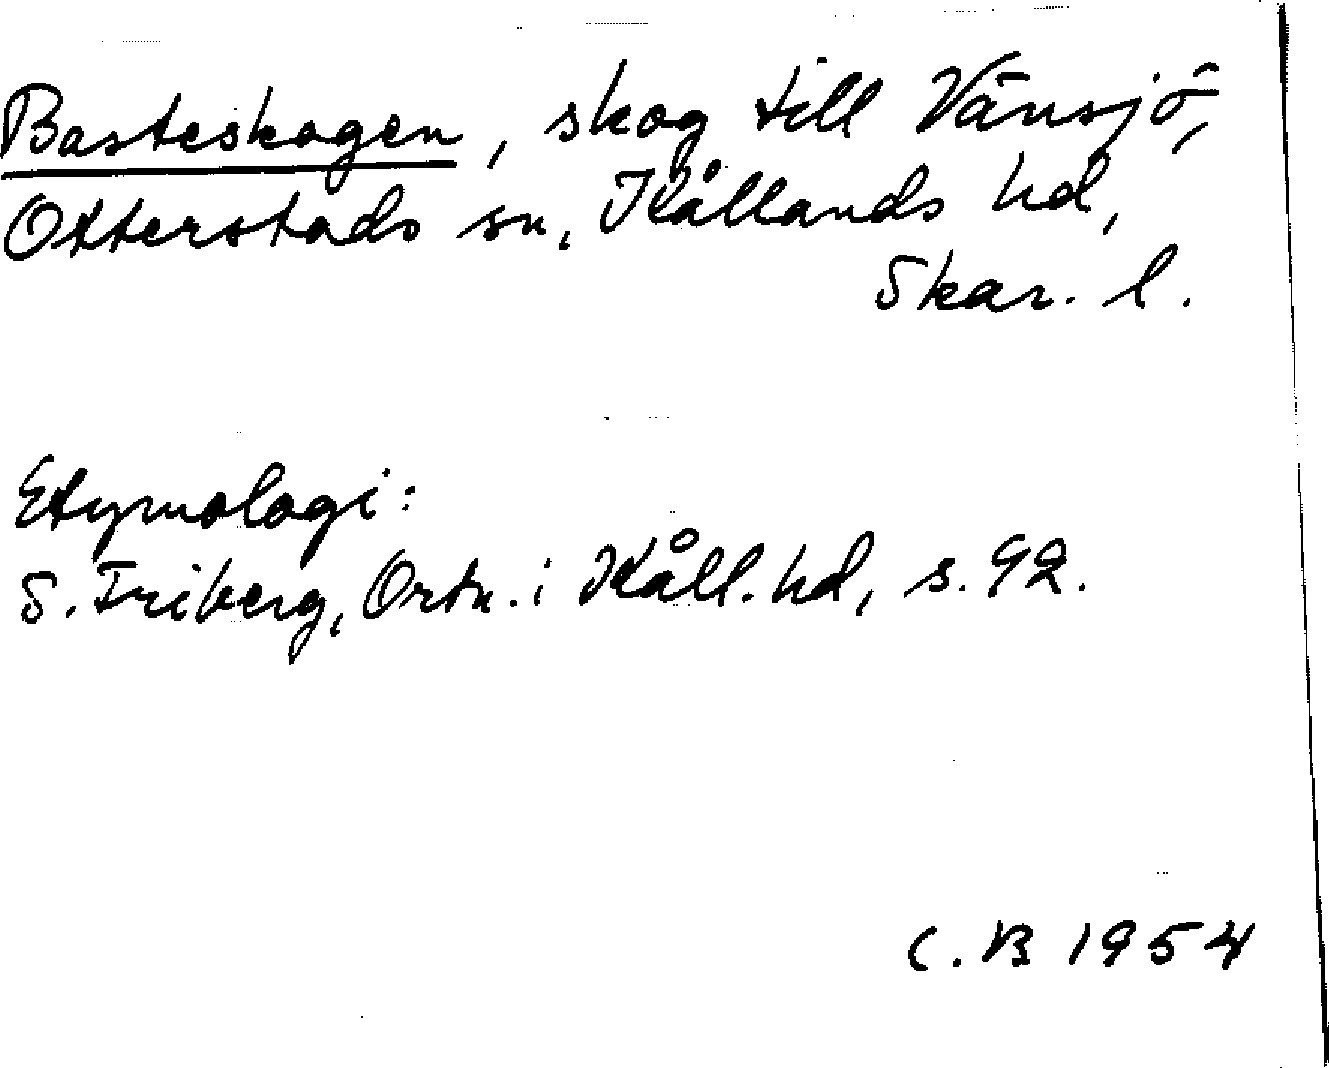 Basteskogen, skog till Vänsjö,
Otterstads sn, Kållands hd,
Skar. l.
Etymologi:
S. Friberg, Ortn. i Kåll. hd, s. 92.
C. B 1954